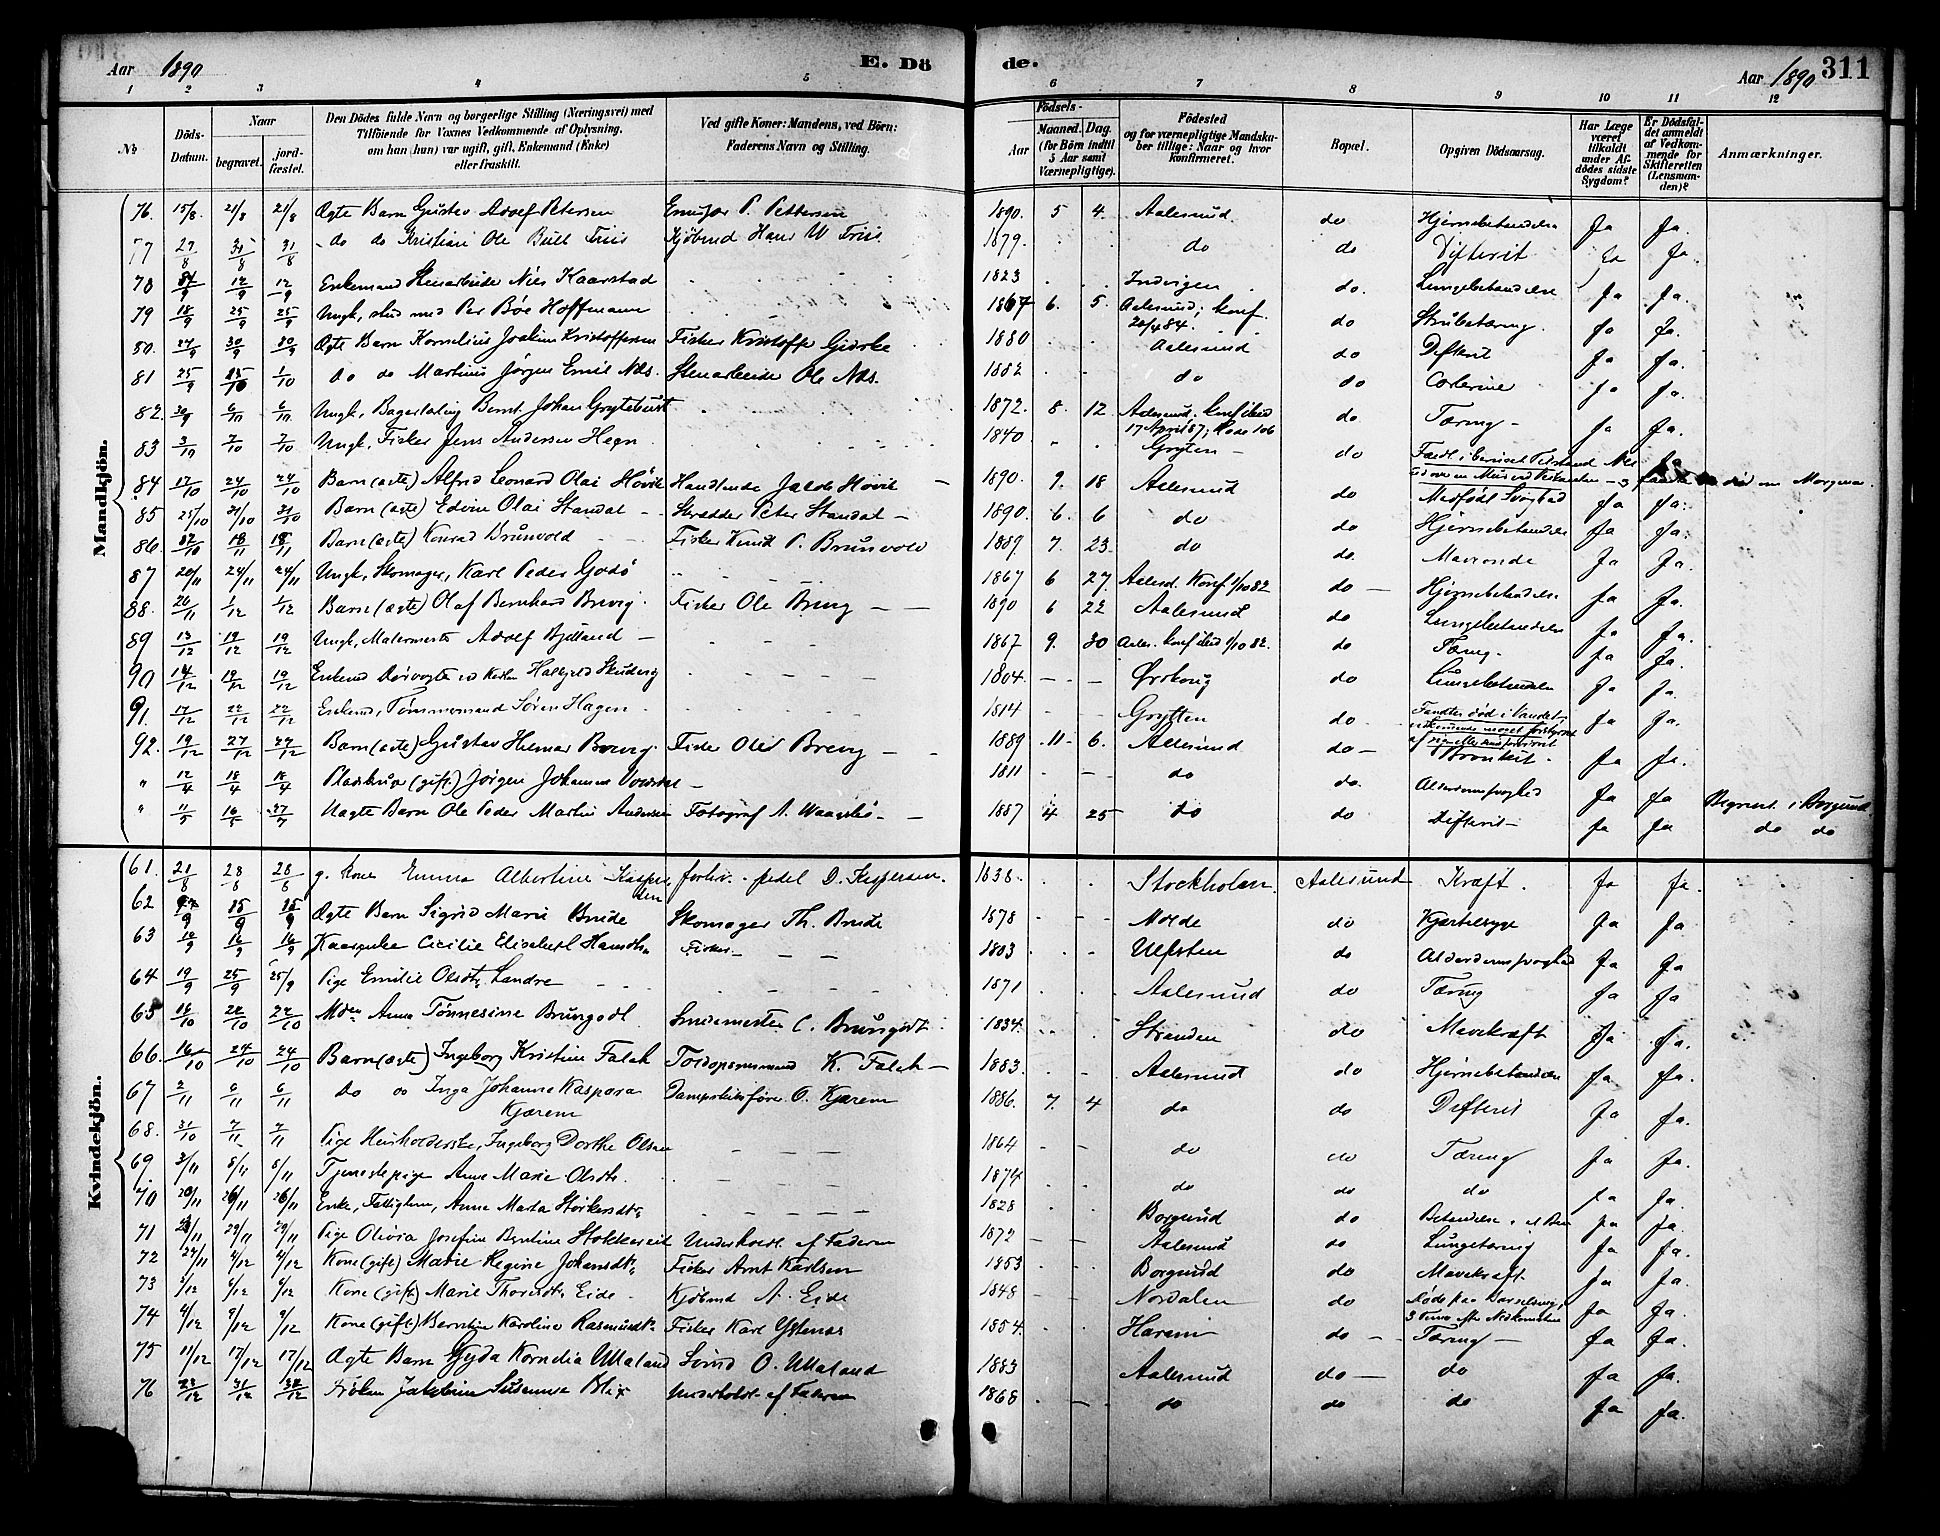 Aar 1890
E. Dö
de.
Aar 1890 311
1 2 3 4 5 6 7 8 9 10 11 12
No
Döds-Datum.
Naar
begravet.
jord-fæstet.
Den Dödes fulde Navn og borgerlige Stilling (Næringsvei) med
Tilföiende for Voxnes Vedkommende af Oplysning,
om han (hun) var ugift, gift, Enkemand (Enke)
eller fraskilt.
Ved gifte Koner: Mandens, ved Börn:
Faderens Navn og Stilling.
Födsels-
Aar
Maaned.
Dag.
(for Börn indtil
5 Aar samt
Værnepligtige).
Födested
og for værnepligtige Mandska-
ber tillige: Naar og hvor
konfirmeret.
Bopæl.
Opgiven Dödsaarsag.
Har Læge
været
tilkaldt
under Af-
dödes sidste
Sygdom?
Er Dödsfal-
det anmeldt
af Vedkom-
mende for
Skifteretten
(Lensman-
den)?
Anmærkninger.
Mandkjön.
76. 15/8. 21/8 21/8 Ægte Barn Gustav Adolf Petersen P. Pettersen 1890. 5 4. Aalesund. do Hjernebetændelse Ja Ja.
77 27/8 31/8 31/8 do do Kristian Ole Bull Friis Kjøbmd Hans W Friis 1879. do do Difterit Ja Ja.
78 9 12/9 12/9 Enkemand Stenarbeide Nils Kaarstad 1823 Indvigen do. Lungebetændelse Ja Ja.
79 18/9 25/9 25/9 Ungk, stud med Per Böe Hoffmann 1867 6. 5. Aalesund, konf. 20/4 84. do Strubetæring. Ja Ja.
80. 27/9 30/9 30/9 Ægte Barn Kornelius Joakim Kristoffersen Fisker Kristoffer Giske 1880 Aalesund do Difterit Ja Ja.
81 25/9 10 1/10 do do Martinus Jörgen Emil Nils. Stenarbeider Ole Nils. 1882 do do Ja Ja.
82. 30/9 6/10 6/10 Ungk, Bagerlærling Bernt Johan Grytebust 1872. 8. 12 Aalesund. konf ibid 17 April 87, do Tæring - Ja Ja.
83 3/10 7/10 7/10 Ungk, Fisker Jens Andersen Hegn 1840 Grytten - do Faldt i beruset Tilstand Ja
84 17/10 24/10 24/10 Barn (ægte) Alfred Leonard Olai Hövik Handlende Hövik 1890 9. 18 Aalesund do Medfödt Svaghed Ja Ja.
85 25/10 31/10 31/10 Barn (ægte) Edvin Olai Standal Skrædder Peter Standal 1890. 6. 6 do do Hjernebetændelse Ja Ja.
86. 18/11 18/11 Barn (ægte) Konrad Brunvold Fisker Knud P. Brunvold 1889 7. 23. do do. Maveonde Ja Ja.
87 20/11 24/11 24/11 Ungk, Skomager, Karl Peder Godö 1867 6 27. Aalesd. Konf. 1/10 82 do Hjernebetændelse Ja Ja.
88. 26/11 1/12 1/12 Barn (ægte) Olaf Bernhard Brevig. Fisker Ole Brevig 1890 6 22 Aalesund do Lungebetændelse Ja Ja.
89 13/12 19/12 19/12 Ungk, Malermester Adolf Bjelland 1867 9. 30 Aales. konf ibid 1/10 82. do Tæring. Ja Ja.
90 14/12 19/12 19/12 Enkemd 1804. Ørskoug do Lungebetændelse Ja Ja.
91. 17/12 22/12 22/12 Enkemd, Tömmermand Sören Hagen. 1814 Grytten do Fandtes död i Vandet, Ja Ja.
92. 19/12 27/12 27/12 Barn (ægte) Gustav Hilmar Brevig. Fisker Ole Brevig 1889 11 - 6. Aalesund do - Bronkit. Ja Ja.
" 12/4 18/4 18/4 (gift) Jörgen Johannes 1811 do do. Alderdomssvaghed Ja Ja Begravet i Borgund
" 11/5 16/5 27/7 Uægte Barn Ole Peder Martin Andersen Fotograf A. Waagsbö 1887 4 25 do do Difterit Ja Ja do do
Kvindekjön.
61. 21/8 28/8 28/8 g. Kone Emma Albertine Kaspersen D. Kaspersen. 1838. Stockholm. Aalesund Kræft. Ja Ja.
62 9 15/9 15/9 Ægte Barn Sigrid Marie Brude Skomager Th. Brude 1878 Molde do Kjertelsyge Ja Ja.
63 10/9 16/9 16/9 Cicilie Elisabeth Hansdtr. Fisker 1803 Ulfsten do Alderdomssvaghed Ja Ja
64 19/9 25/9 25/9 Pige Emilie Olsdtr. Landre 1871 Aalesund do Tæring Ja Ja
65 16/10 22/10 22/10 Anna Tönnesine Brungodt Smedemester C. Brungodt 1834. Stranden do Mavekræft Ja Ja.
66. 16/10 24/10 24/10 Barn (ægte) Ingeborg Kristine Falch K. Falch 1883. Aalesund do Hjernebetændelse Ja Ja.
67 2/11 6/11 6/11 do do Inga Johanne Kaspara Kjærem Dampskibsförer O. Kjærem 1886. 7. 4 do do Difterit Ja Ja.
68. 31/10 7/11 7/11 Pige Husholderske, Ingeborg Dorthe Olsen 1864 do do Tæring Ja Ja.
69. 3/11 8/11 8/11 Tjenestepige Anne Marie Olsdtr. 1874 do do do Ja Ja.
70 20/11 26/11 26/11 Enke, Fattiglem, Anne Marta Störkersdtr. 1828 Borgund do Betændelse i et Ben Ja Ja.
71 11 29/11 29/11 Pige Olivia Josefine Berntine Stokkereit Underholdt af Faderen 1872 Aalesund do Lungetæring Ja Ja.
72 27/11 4/12 4/12 Kone (gift) Marie Regine Johansdtr. Fisker Arnt Karlsen 1853 Borgund do Mavekræft Ja Ja.
73 3/12 6/12 6/12 Kone (gift) Marie Thorsdtr Eide Kjöbmd A. Eide 1848 Nordalen do Döde paa Barselseng, Ja Ja.
74 4/12 9/12 9/12 Kone (gift) Berntine Karoline Rasmusdtr. Fisker Karl Ystenes 1854. Harem do - Tæring Ja Ja.
75 11/12 17/12 17/12 Ægte Barn Gyda Kornelia Ulaland O. Ulaland 1883 Aalesund do - do Ja Ja.
76 23/12 31/12 12 Fröken Jakobine Susanna Blix Underholdt af Faderen 1868 do do do Ja Ja.